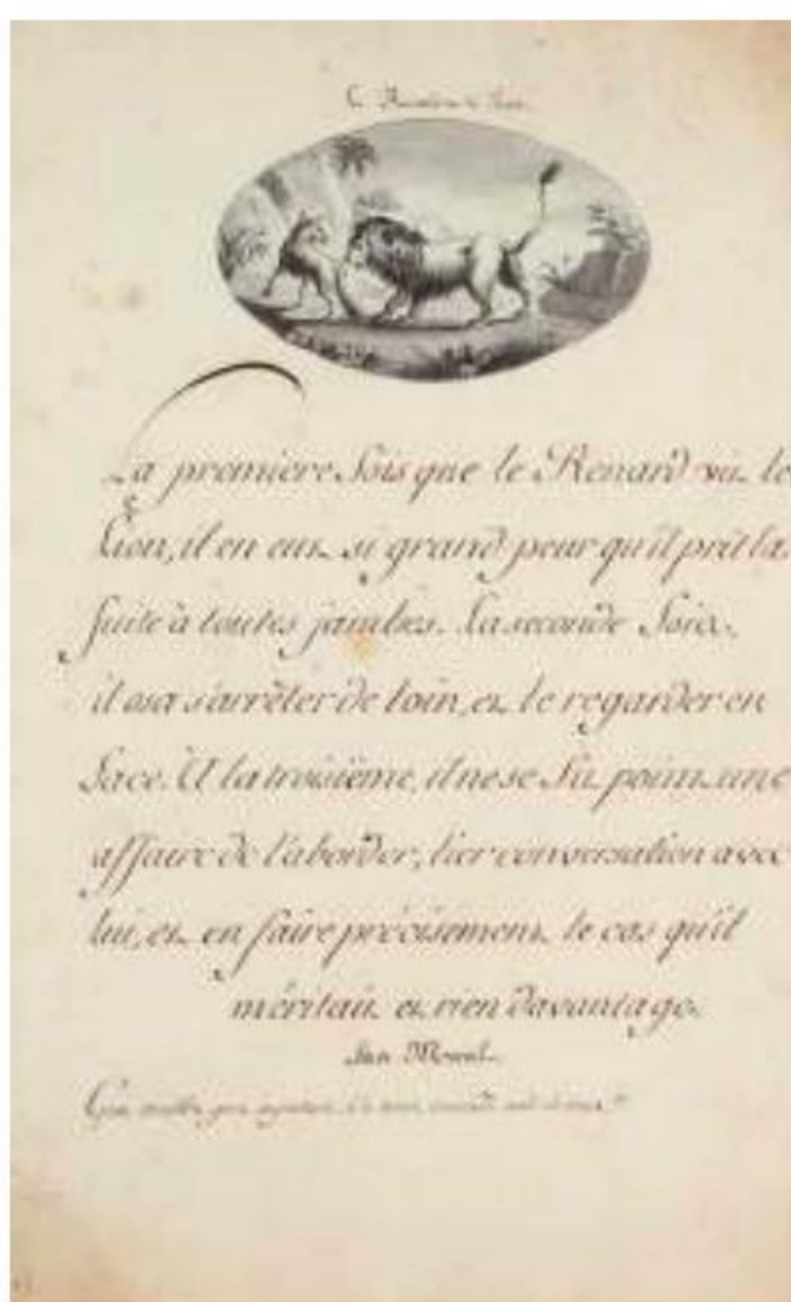 La premiere fois que le Renard vit le
Lion, il en eut si grand peur qu'il prit la
fuite à toutes jambes. La seconde fois,
il osa s'arrêter de loin, et le regarder en
face. A la troisième, il ne se fit point une
affaire de l'aborder, lier conversation avec
lui, et en faire précisement le cas qu'il
méritait et rien davantage.